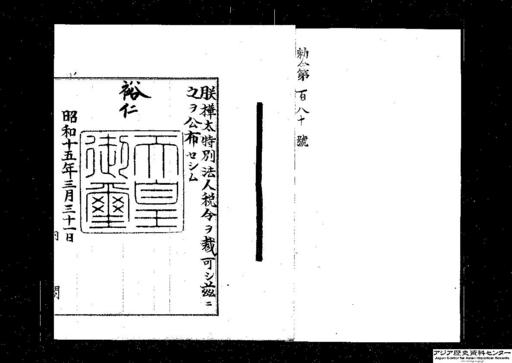 勅令第百八十號
朕樺太特別法人税令ヲ裁可シ茲ニ
之ヲ公布セシム
裕仁
天皇
御璽
昭和十五年三月三十一日
内
閣
アジア歴史資料センター
Japan Center for Asian Historical Records